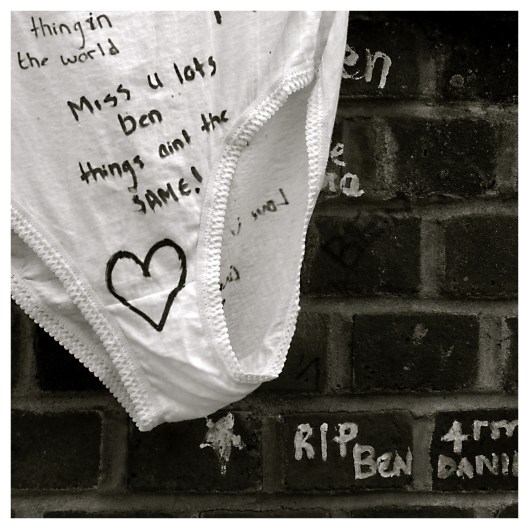 thingin
the world
Miss u lots
ben
things aint the
SAME!
en
RIP
BEN
4rm
DANI